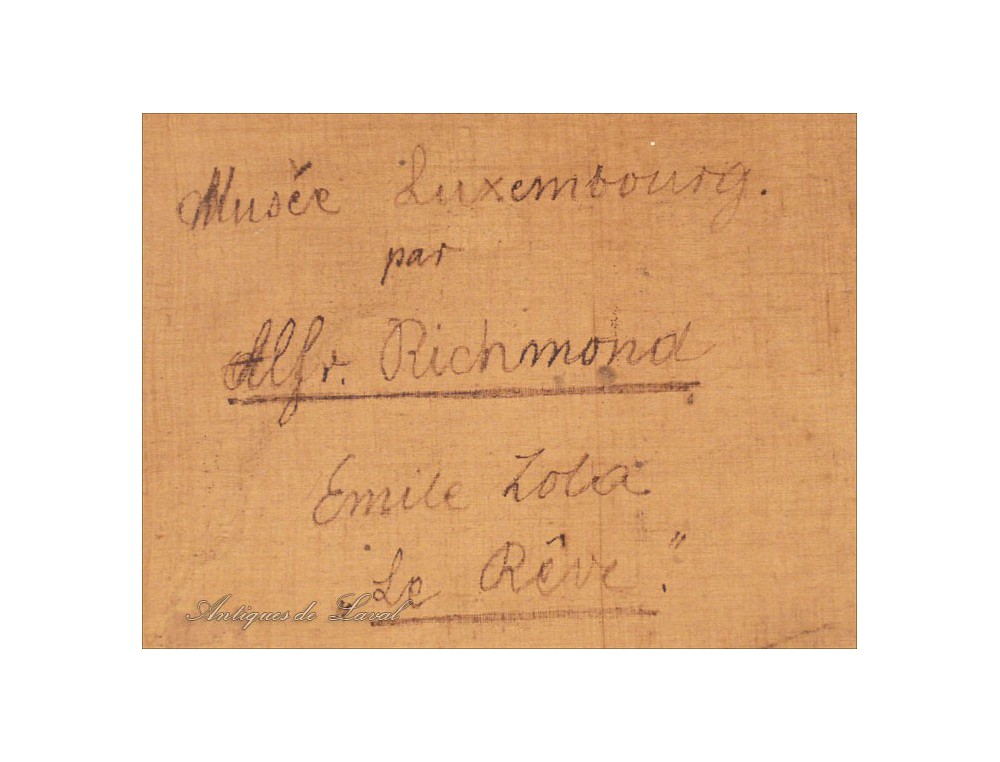 Musée Luxembourg.
par
Alfr. Richmond
Emile Zola
Le Rêve."
Antiques de Laval